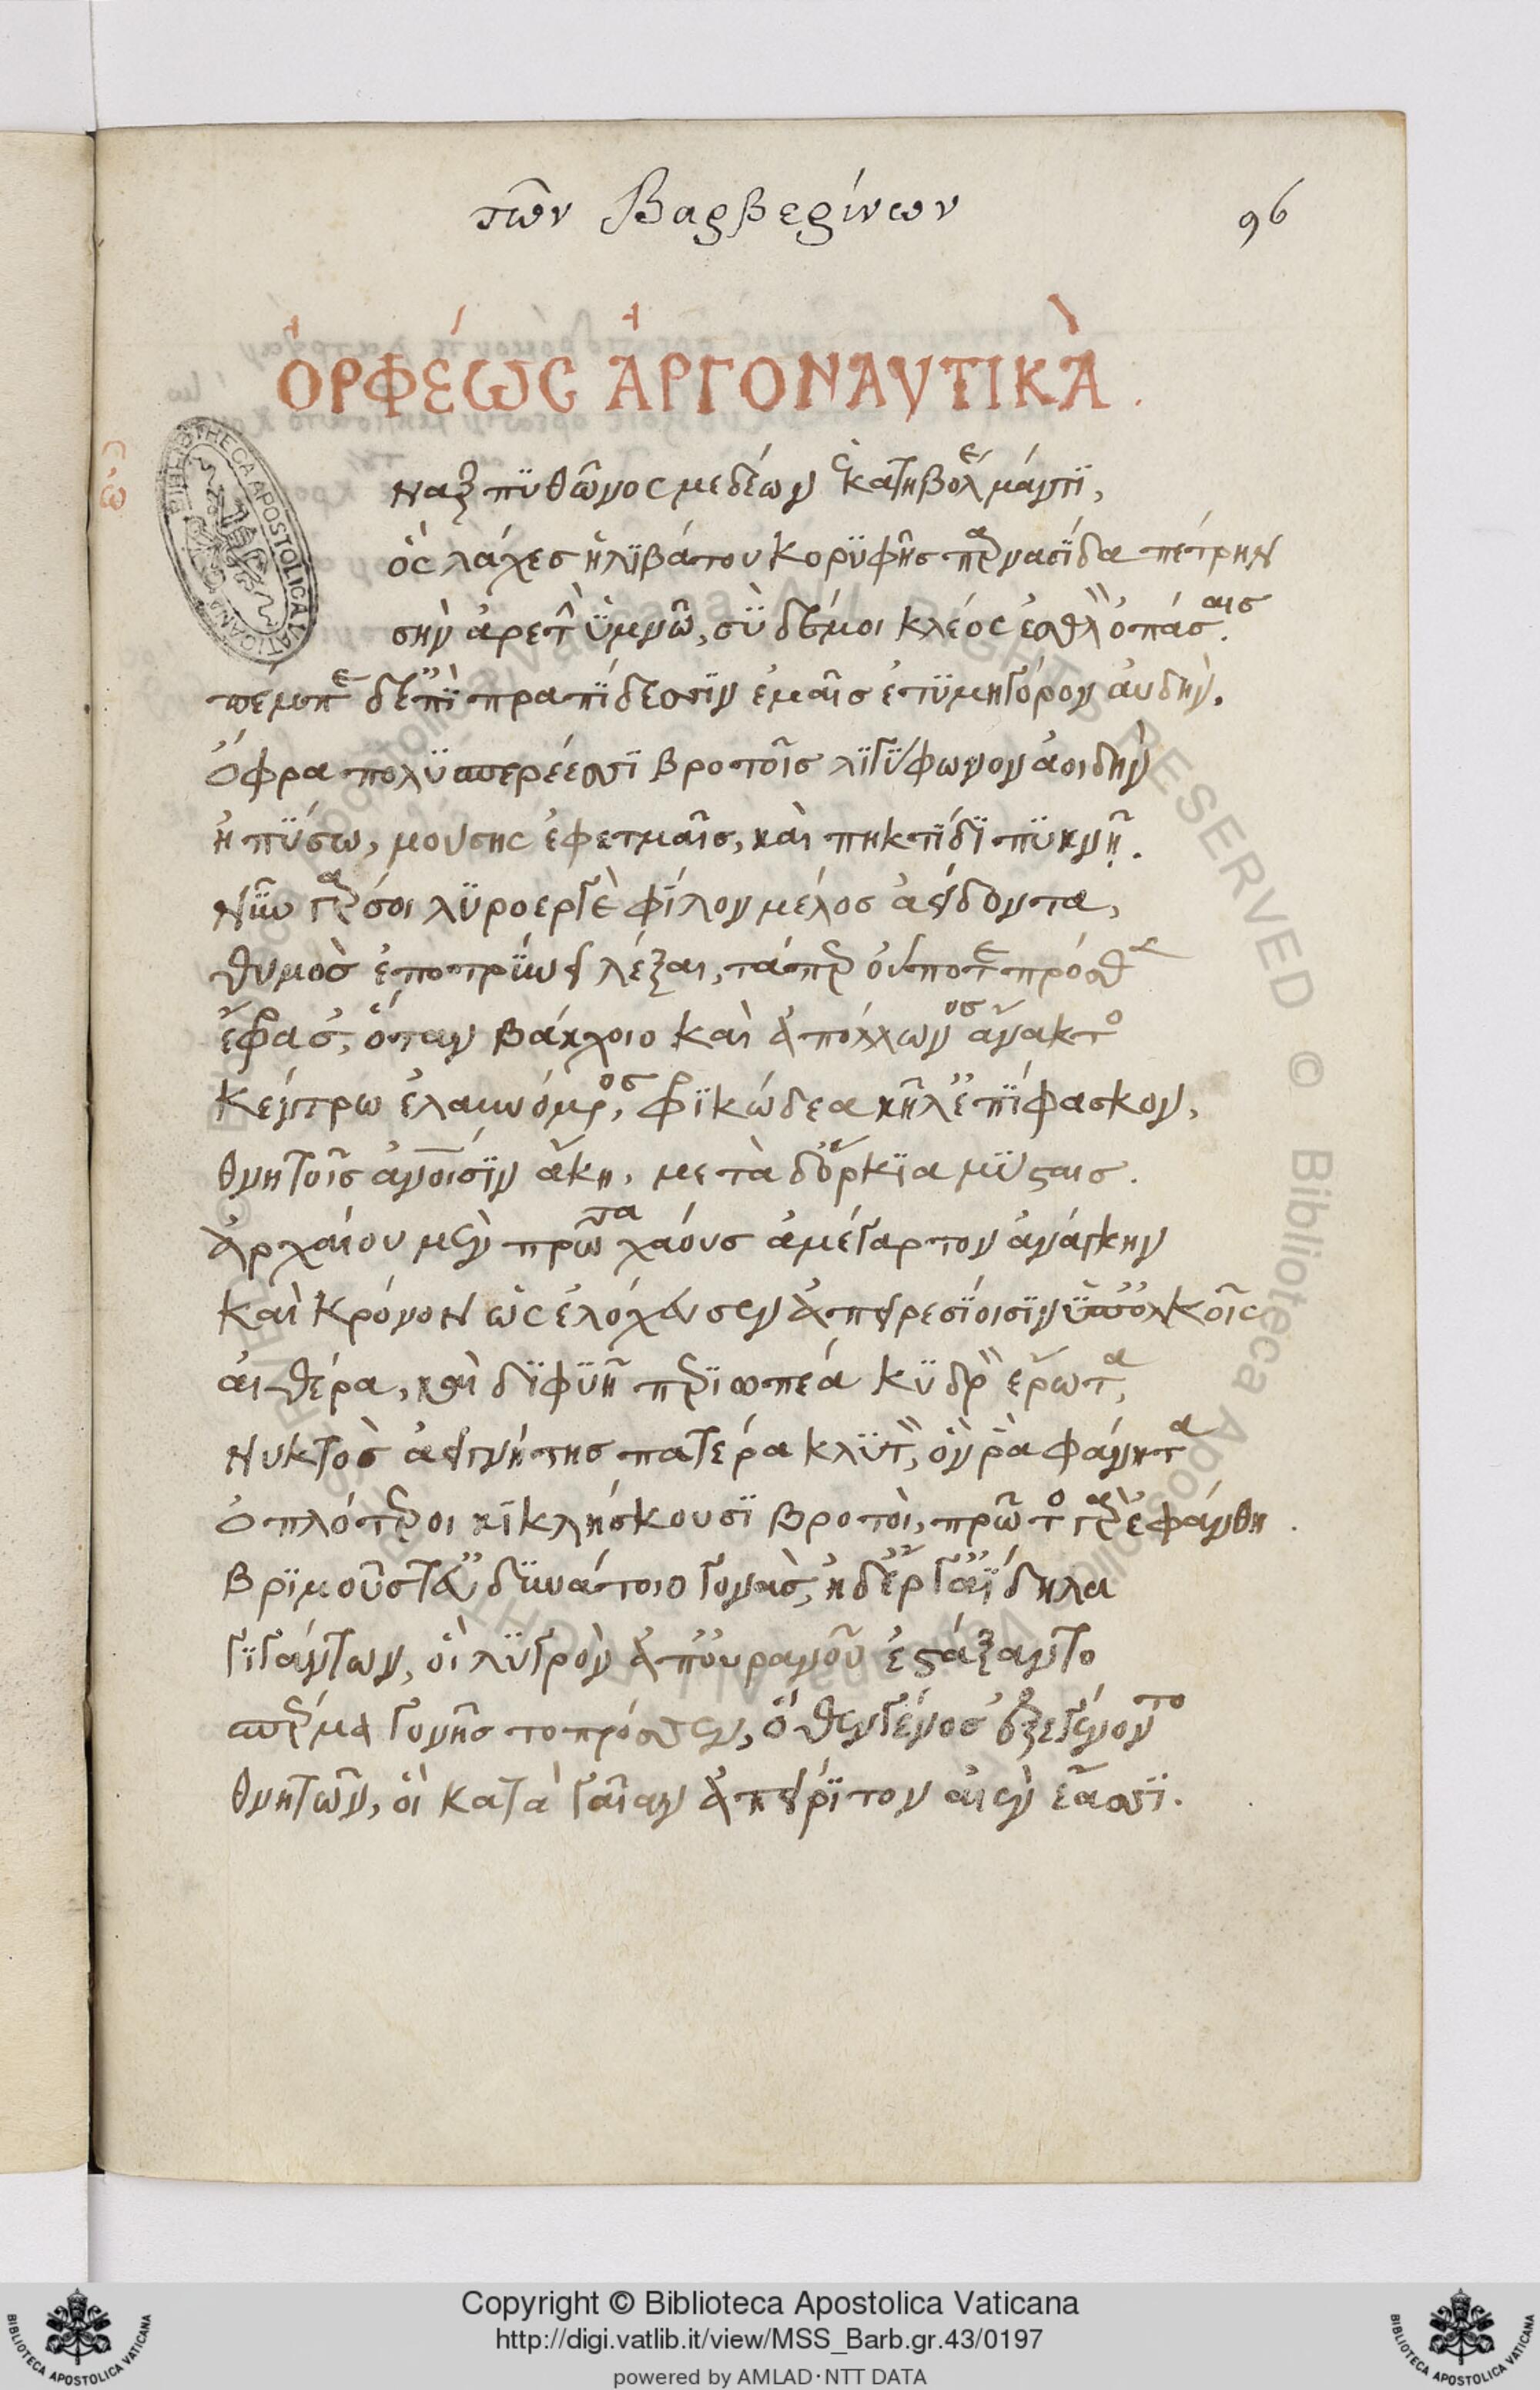 τῶν Βαρβερίνων
96
ὈΡΦΈΩΣ ἈΡΓΟΝΑΥΤΙΚᾺ.
ναξ πϋθῶνος μεδέων ἑκατηβόλε μάντϊ,
ὃς λάχες ἠλϊβάτου κορϋφῆς παρνασΐδα πέτρην
σὴν ἀρετὴν ὑμνῶ, σὺ δέ μοι κλέος ἐσθλὸν ὀπάσαις.
πέμπε δ' ἐπῒ πραπΐδεσσϊν ἐμαῖς ἐτϋμηγόρον αὐδήν.
Ὄφρα πολϋσπερέεσσϊ βροτοῖς λϊγΰφωνον ἀοιδὴν
ἠπΰσω, μούσης ἐφετμαῖς, καὶ πηκτΐδϊ πϋκνῇ.
Νῦν γάρ σοι λϋροεργὲ φΐλον μέλος ἀείδοντα,
θυμὸς ἐποτρΰνει λέξαι, τάπερ οὔποτε πρόσθε
ἔφρασ', ὅταν βάκχοιο καὶ ἀπόλλωνος ἄνακτο
κέντρω ἐλαυνόμενος, φρϊκώδεα κῆλ' ἐπΐφασκον,
θνητοῖς ἀνοισϊν ἄκη, μετὰ δ' ὄρκϊα μΰσταις.
Ἀρχαίου μὲν πρῶτα χάους ἀμέγαρτον ἀνάγκην
καὶ Κρόνον ὡς ἐλόχευσεν ἀπειρεσΐοισϊν ὑφ' ὁλκοῖς
αἰθέρα, καὶ δϊφϋῆ περϊωπέα κϋδρὸν ἔρωτα,
Νυκτὸς ἀειγνήτης πατέρα κλϋτὸν, ὅν ῥα φάνητα
ὁπλότεροι κϊκλήσκουσϊ βροτοὶ, πρῶτο γὰρ ἐφάνθη.
Βρϊμοῦς τ' εὐδϋνάτοιο γονὰς, ἠδ' ἔργ' ἀΐδηλα
γϊγάντων, οἳ λϋγρὸν ἀπ' οὐρανοῦ ἐστάξαντο
σπέρμα γονῆς τοπρόσθεν, ὅθεν γένος ἐξεγένοντο
θνητῶν, οἳ κατὰ γαῖαν ἀπείρϊτον αἰὲν ἔασσϊ.
BIBLIOTHECA APOSTOLICA VATICANA
Copyright © Biblioteca Apostolica Vaticana
http://digi.vatlib.it/view/MSS_Barb.gr.43/0197
powered by AMLAD·NTT DATA
BIBLIOTECA APOSTOLICA VATICANA
BIBLIOTECA APOSTOLICA VATICANA